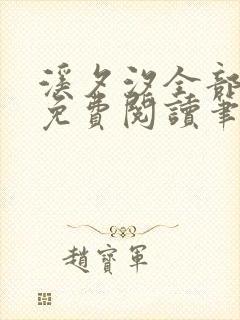 溪夕汐全部
免費閱讀筆
趙寶軍